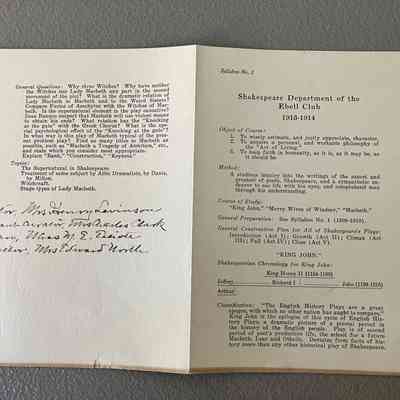 General Questions: Why three Witches? Why have neither
the Witches nor Lady Macbeth any part in the second
movement of the play? What is the dramatic relation of
Lady Macbeth to Macbeth and to the Weird Sisters?
Compare Furies of Aeschylus with the Witches of Mac-
beth. Is the supernatural element in the play causative?
Does Banquo suspect that Macbeth will use violent means
to obtain his ends? What relation has the "Knocking
at the gate" with the Greek Chorus? What is the spe-
cial psychological effect of the "Knocking at the gate"?
In what way is this play of Macbeth typical of the pres-
ent problem play? Find as many titles to Macbeth as
possible, such as "Macbeth a Tragedy of Ambition," etc.,
and state which you consider most appropriate.
Explain "Rank," "Construction," "Keynote."
Topics:
The Supernatural in Shakespeare.
Treatment of same subject by other Dramatists, by Dante,
by Milton.
Witchcraft.
Stage types of Lady Macbeth.
Mrs Henry
Curator, Mrs Charles Clark
Miss M. E.
Mrs Edward North
Syllabus No. 2
Shakespeare Department of the
Ebell Club
1913-1914
Object of Course:
1. To wisely estimate, and justly appreciate, character.
2. To acquire a personal, and workable philosophy of
the "Art of Living."
3. To gain faith in humanity, as it is, as it may be, as
it should be.
Method:
A studious inquiry into the writings of the sanest and
greatest of poets, Shakespeare, and a systematic en-
deavor to use life with his eyes, and comprehend man
through his understanding.
Course of Study:
"King John," "Merry Wives of Windsor," "Macbeth."
General Preparation: See Syllabus No. 1 (1909-1910).
General Construction Plan for All of Shakespeare's Plays:
Introduction (Act I); Growth (Act II); Climax (Act
III); Fall (Act IV); Close (Act V).
"KING JOHN."
Shakespearian Chronology for King John:
King Henry II (1154-1189)
Jeffrey Richard I John (1199-1216)
Arthur
Classification: "The English History Plays are a great
epopee, with which no other nation has aught to compare."
King John is the epilogue of this cycle of English His-
tory Plays; a dramatic picture of a pivotal period in
the history of the English people. Play is of second
period of poet's productive life, the school for a future
Macbeth, Lear and Othello. Deviates from facts of his-
tory more than any other historical play of Shakespeare.